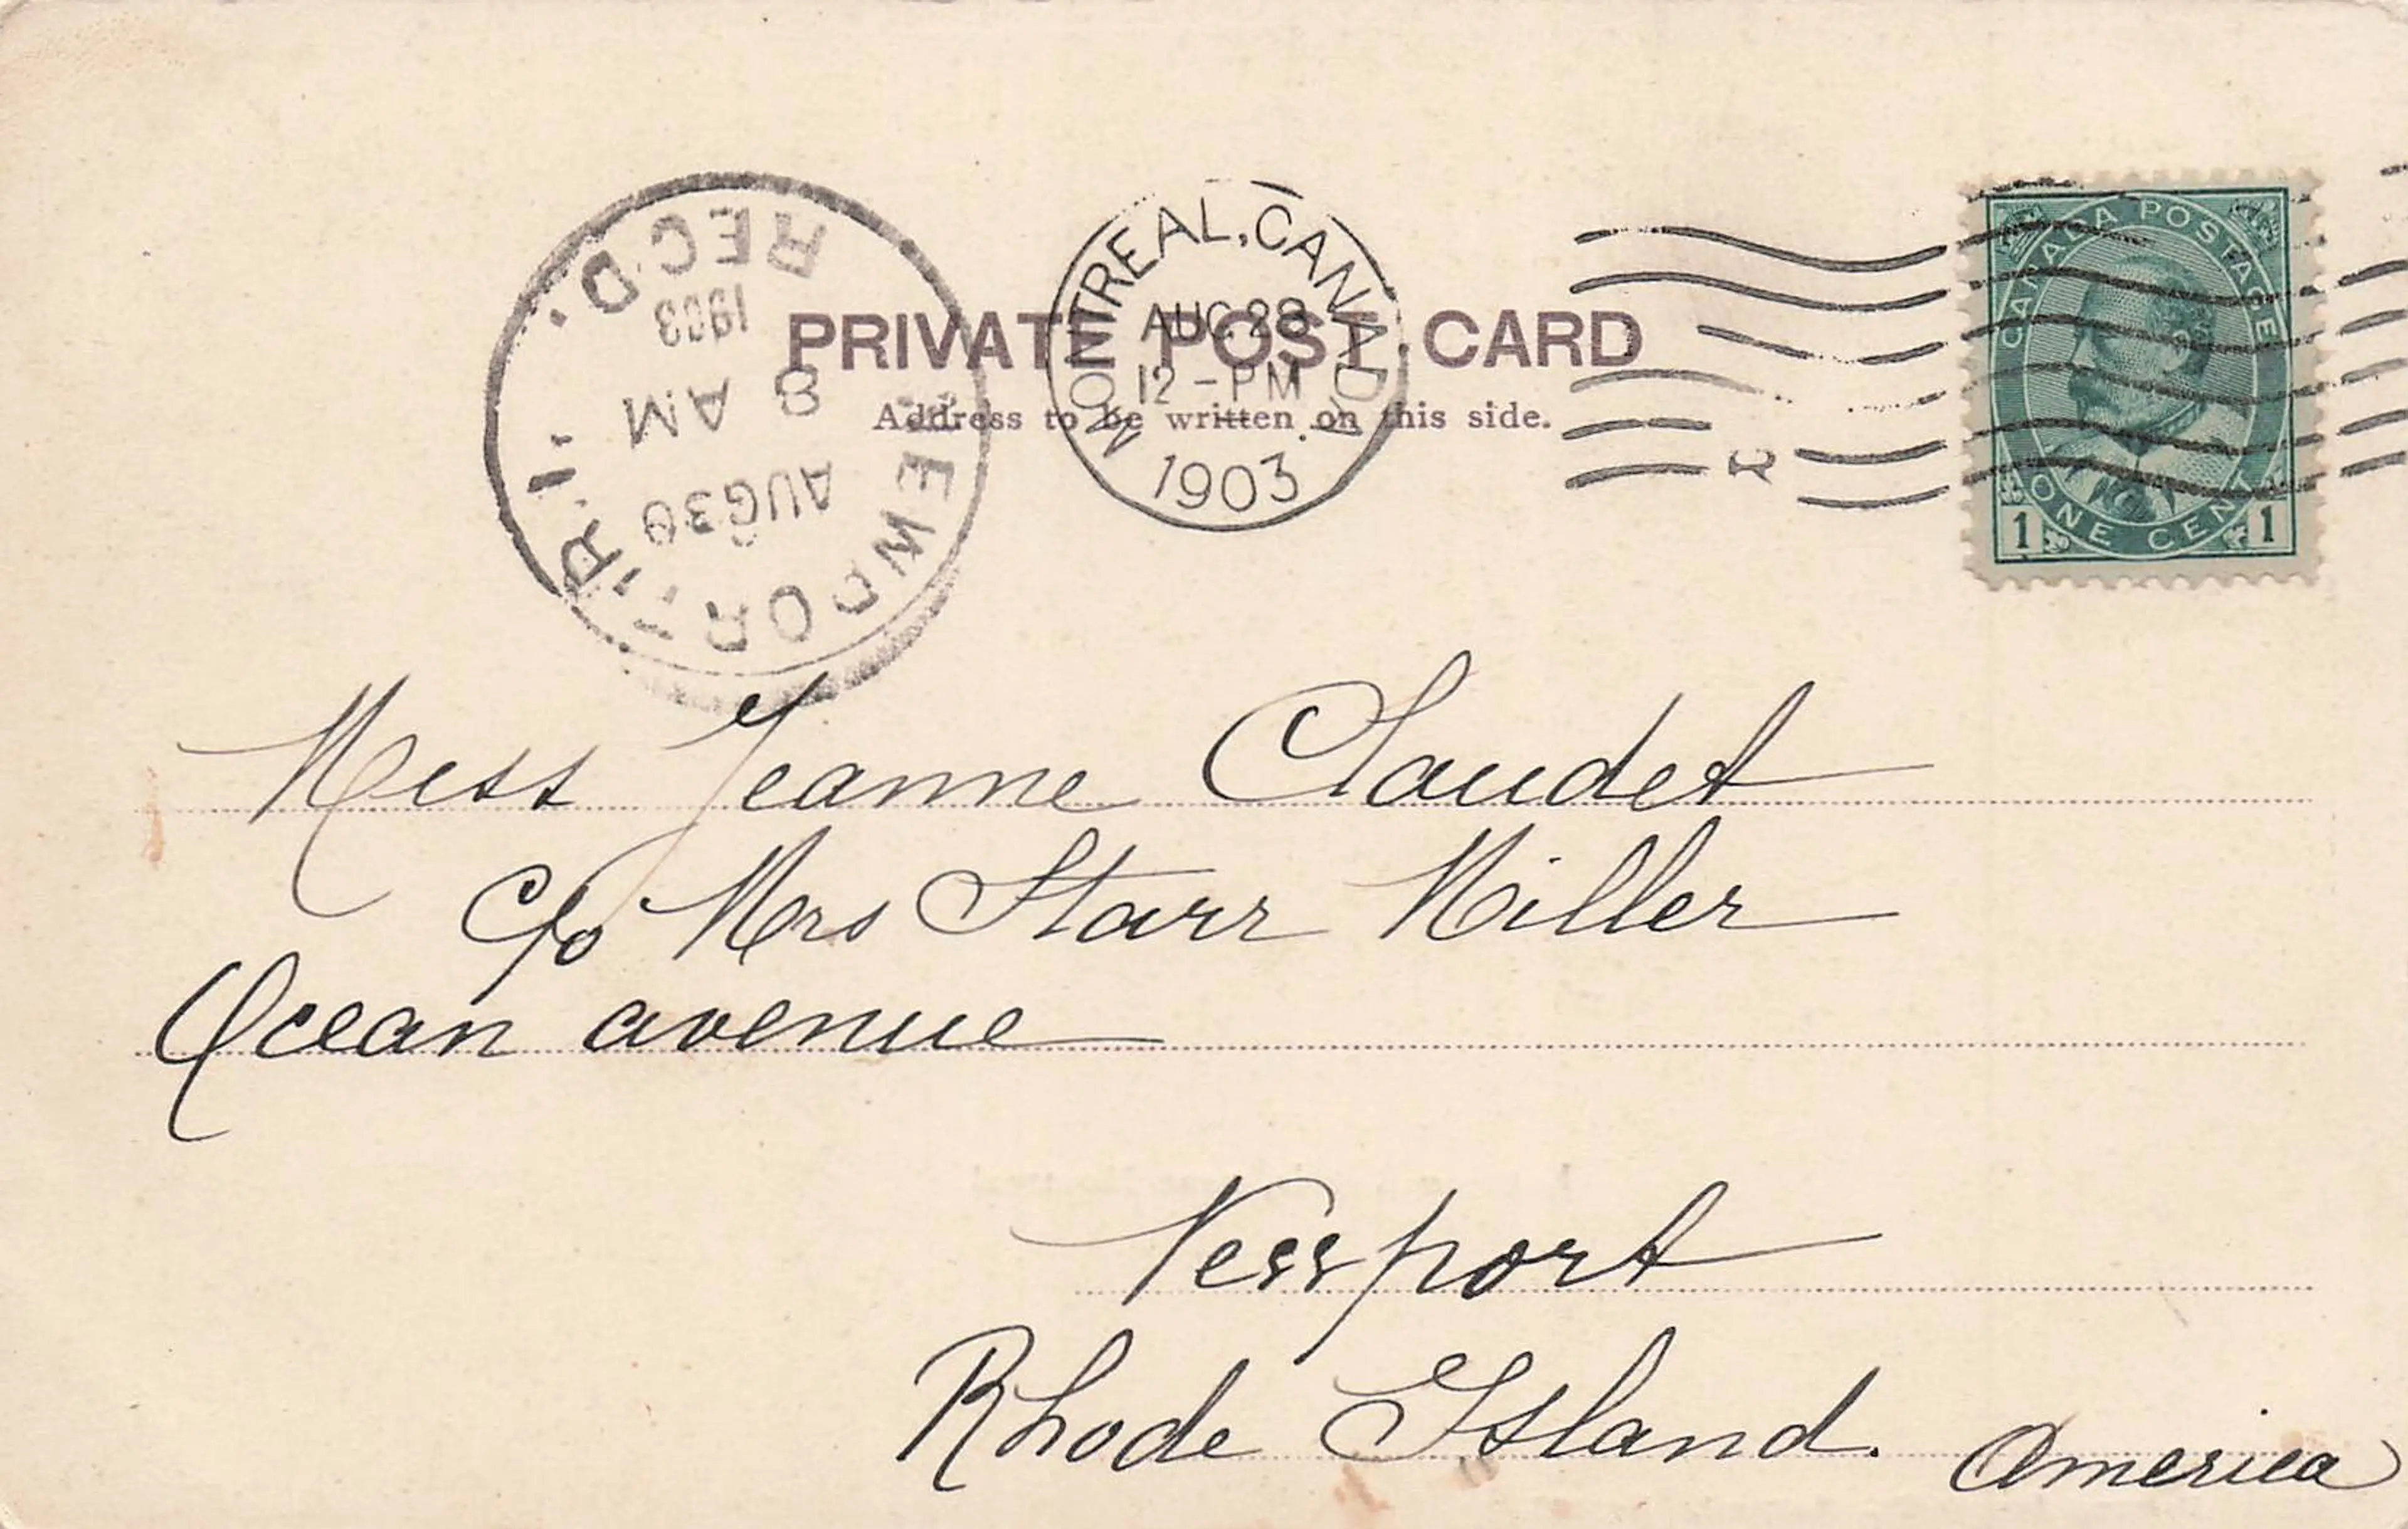 REC'D.
1903
8 AM
AUG 30
NEWPORT, R.I.
MONTREAL, CANADA
AUG 28
12 - PM
1903
CANADA POSTAGE
ONE CENT
1 1
PRIVATE POST CARD
Address to be written on this side.
Miss Jeanne Claudet
c/o Mrs Starr Miller
Ocean avenue
Newport
Rhode Island. America